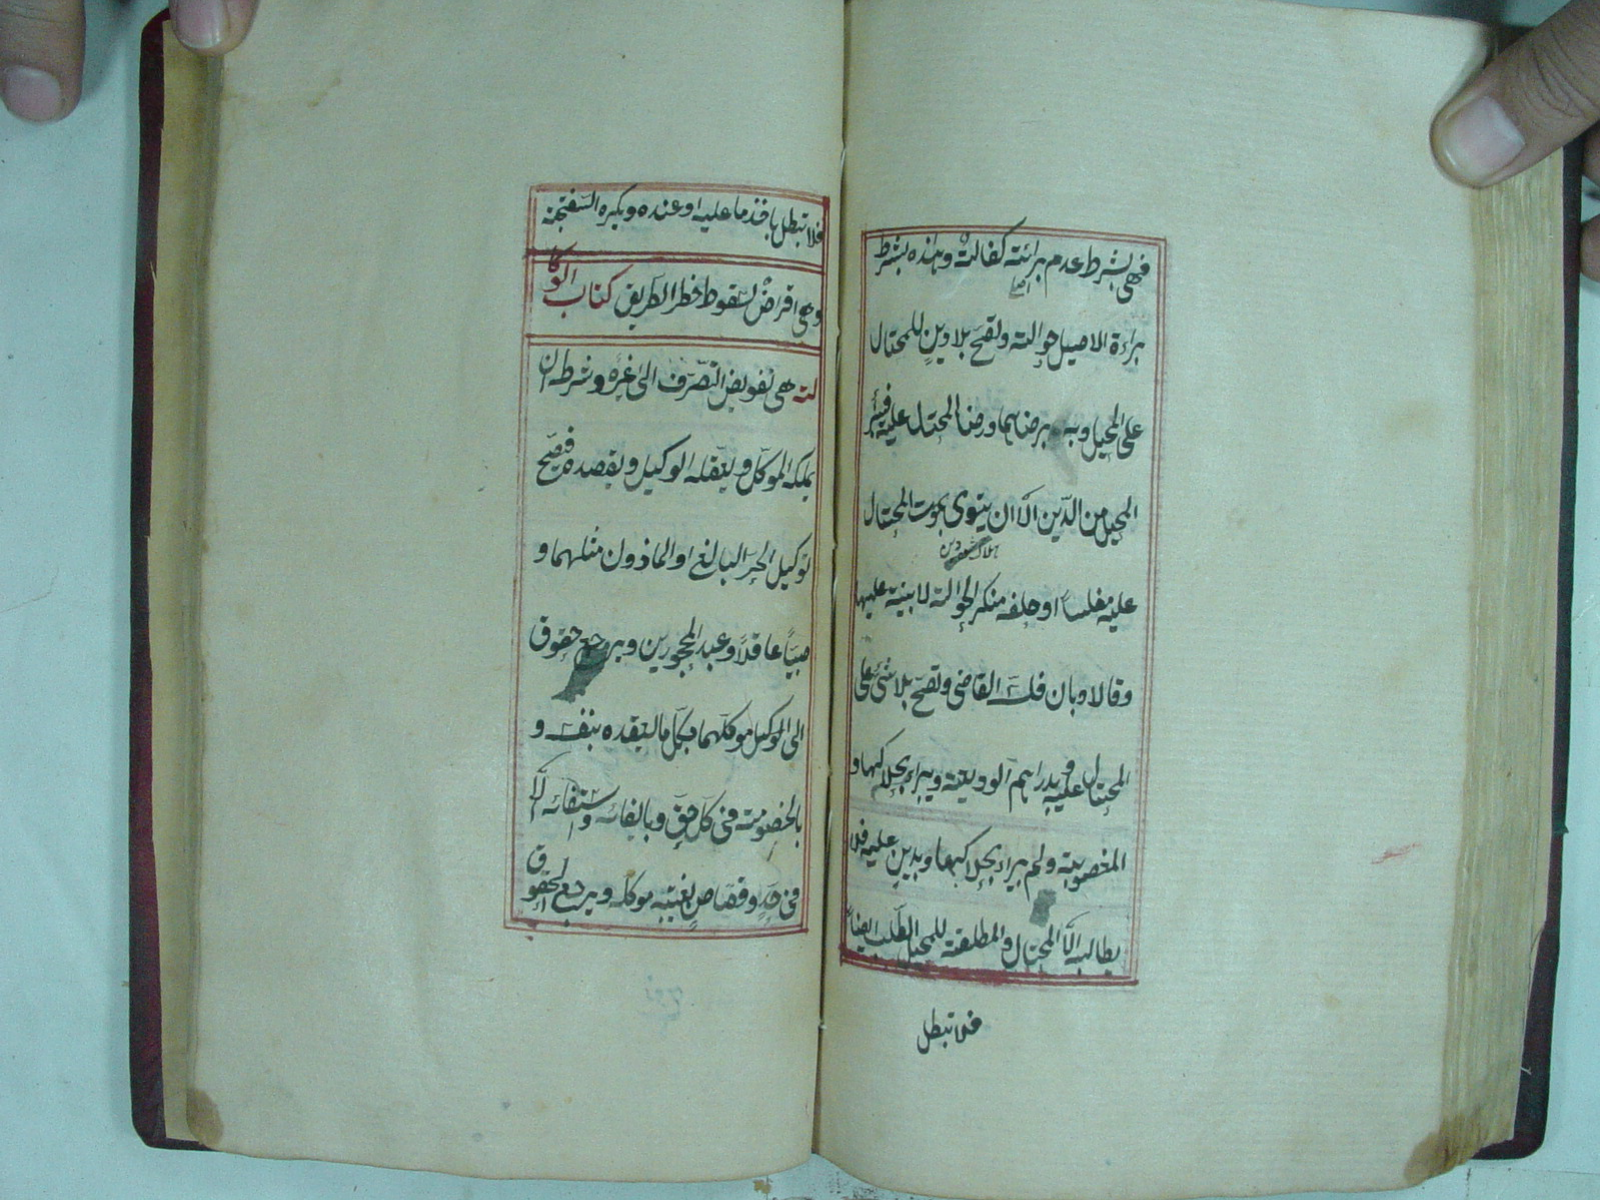 فهى بشرط عدم برائته كفالة وهذه بشرط
اصيل
براءة الاصيل حوالة وتصح بلا دين للمحتال
على المحيل وبه برضاهما ورضا المحتال عليه فيبرأ
المحيل من الدين الا ان يتوى بموت المحتال
هلاك شدن
عليه مفلسا او حلفه منكر الحوالة لا بينة عليها
وقالا وبان فلسه القاضى وتصح بلا شئ على
المحتال عليه وبدراهم الوديعة ويبراء بهلاكها و
المغصوبة ولم يبراء بهلاكها وبدين عليه فلا
يطالبه الا المحتال والمطلقة للمحيل الطلب ايضا
فلا تبطل
فلا تبطل باخذ ما عليه او عنده ويكره السفتجة
وهى اقراض لسقوط خطر الطريق كتاب الوكا
لة هى تفويض التصرف الى غيره وشرطه ان
يملكه الموكل ويعقله الوكيل ويقصده فيصح
توكيل الحر البالغ او الماذون مثلهما و
صبيا عاقلا وعبد المحجورين ويرجع حقوق
الى الموكيل موكلهما بكل ما يعقده بنفسه و
بالخصومة فى كل حق وبايفائه واستيفائه الا
فى حد وقصاص بغيبة موكله ويرجع الحقوق